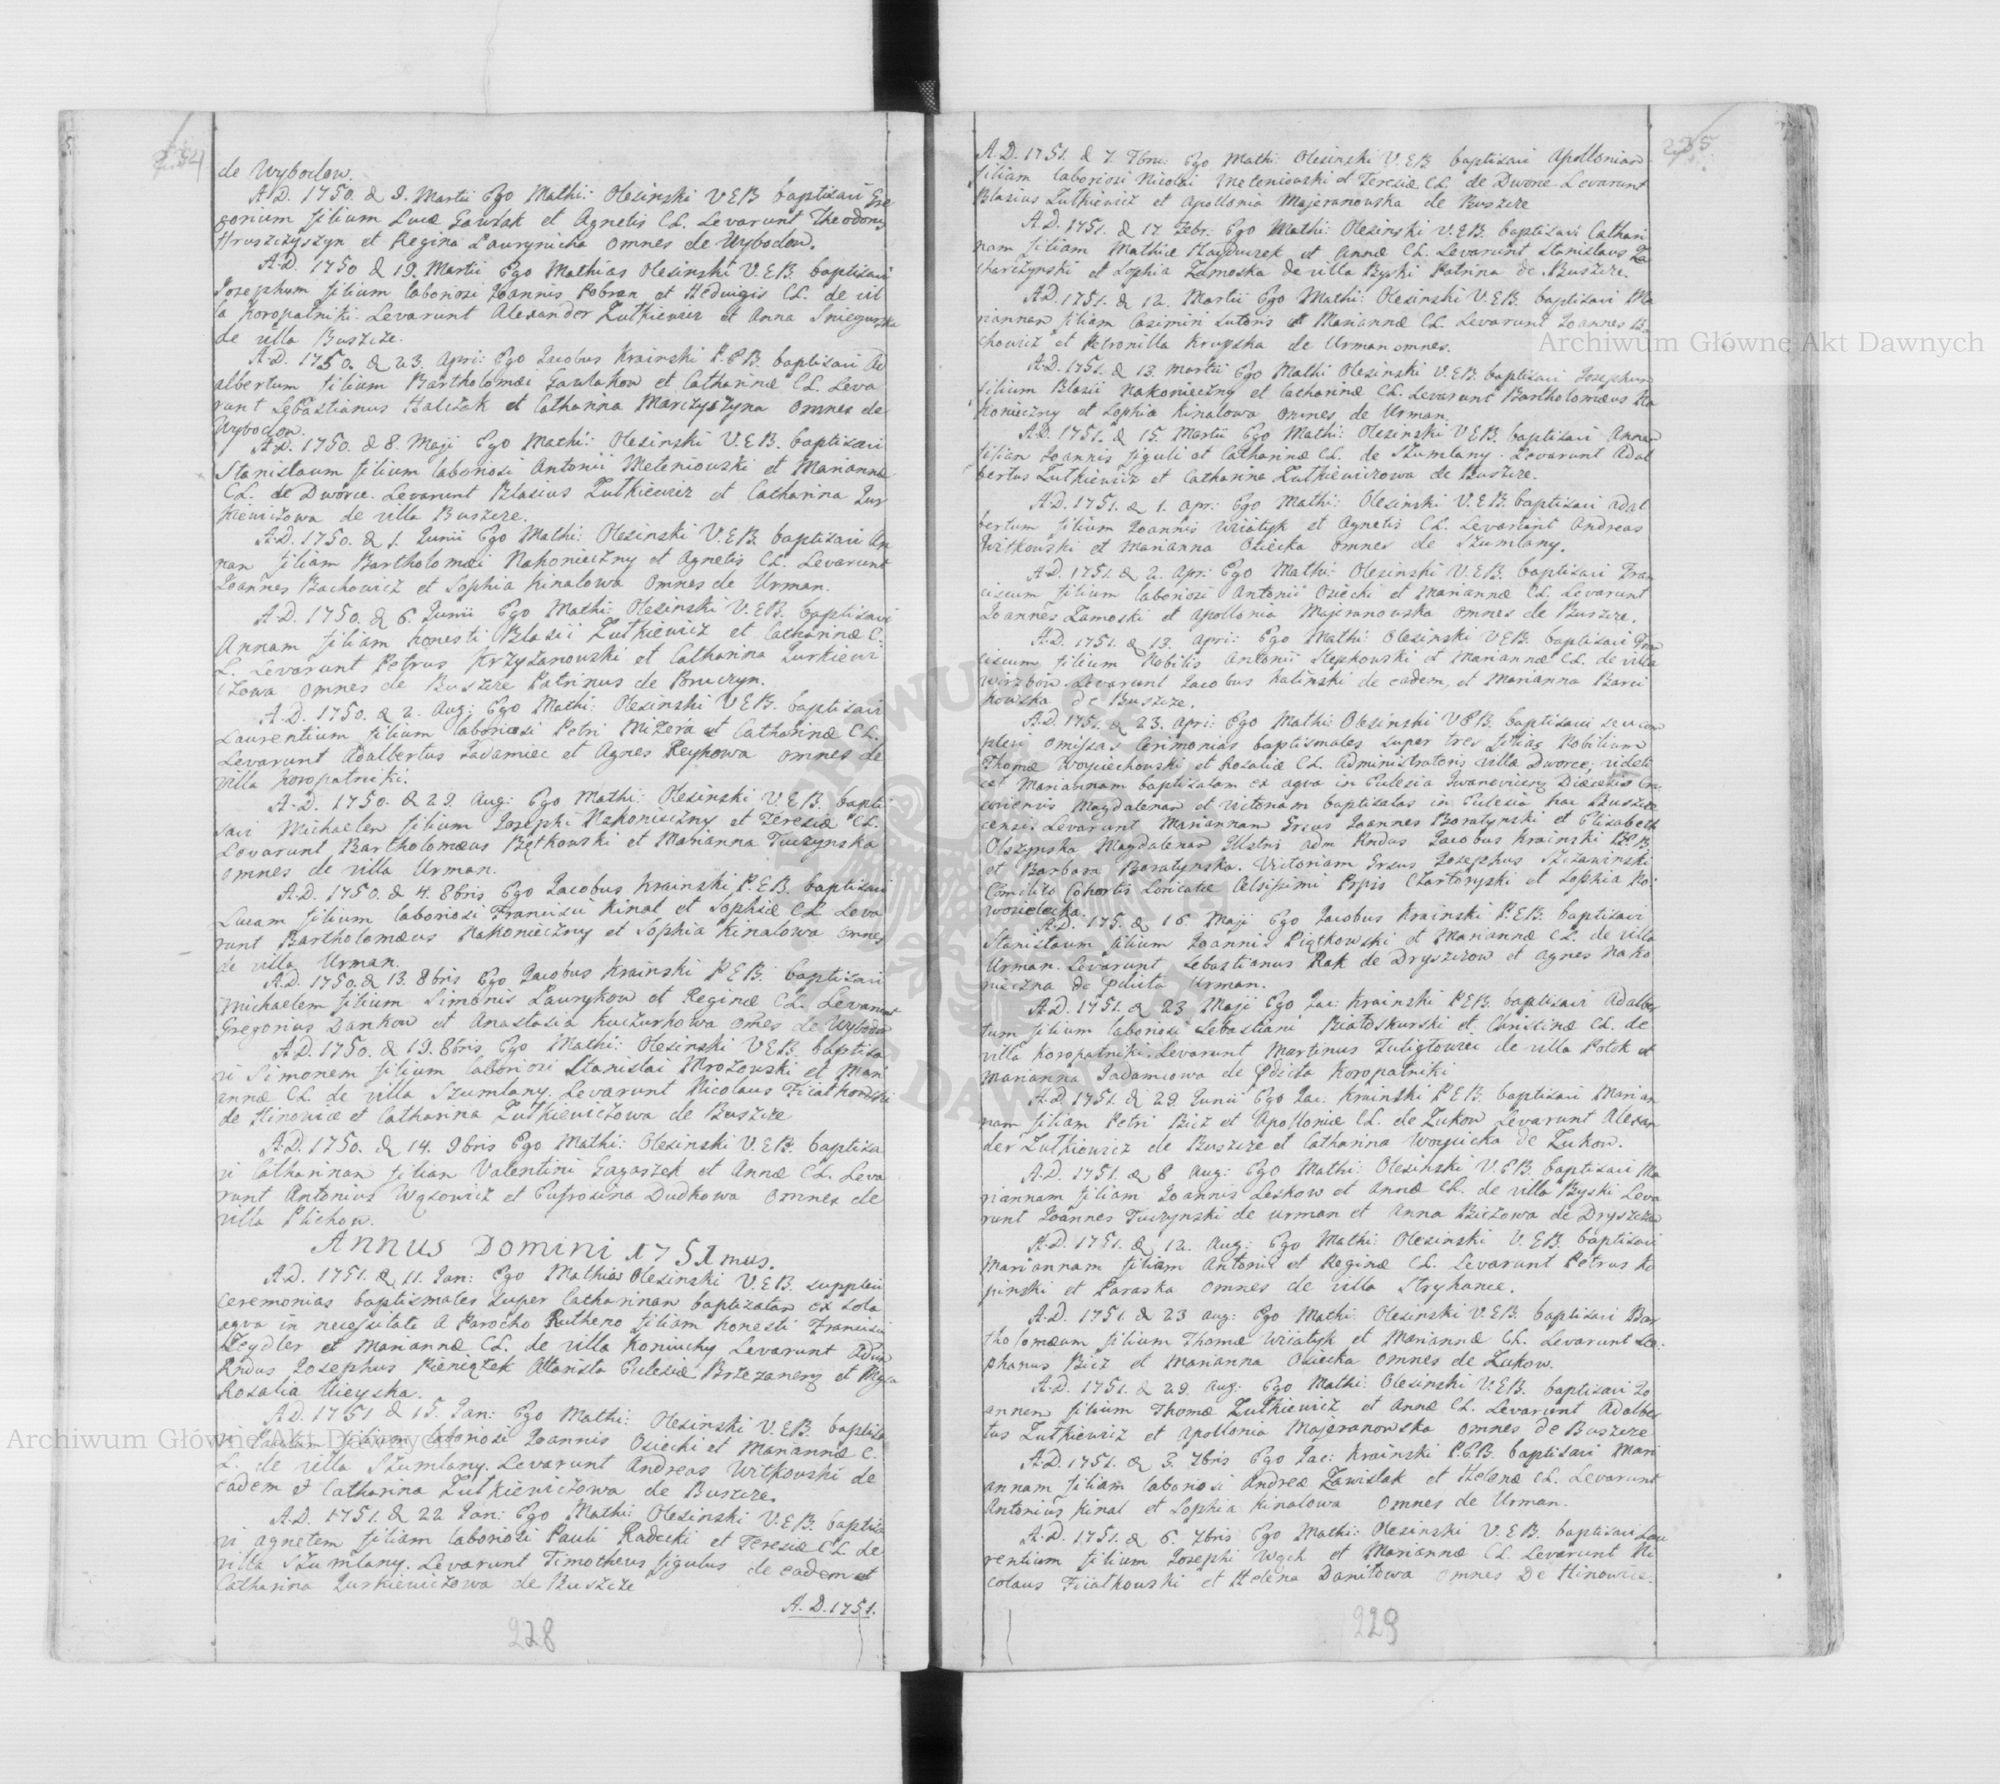 234
de Wybodow.
A.D. 1750. d 9. Martii Ego Mathi: Olesinski V.E.B. baptisavi Gre
gorium filium Lucæ Gawlak et Agnetis C.L. Levarunt Theodorus
Hruszczyszyn et Regina Laurynicha omnes de Wybodow.
A.D. 1750 d 19. Martii Ego Mathias Olesinski V.E.B. baptisavi
Josephum filium laboriosi Joannis Pobran et Hedvigis C.L. de vil
la Koropatniki. Levarunt Alexander Zutkiewicz et Anna Sniegurska
de villa Buszcze.
A.D. 1750. d 23. Apri: Ego Jacobus Krainski P.E.B. baptisavi Ad
albertum filium Bartholomæi Gawlakow et Catharinæ C.L. Leva
runt Sebastianus Halczak et Catharina Marczyszyna omnes de
Wybodow.
A.D. 1750. d 8 Maji Ego Mathi: Olesinski V.E.B. baptisavi
Stanislaum filium laboriosi Antonii Meteniowski et Mariannæ
C.L. de Dworce. Levarunt Blasius Zutkiewicz et Catharina Jur
kiewiczowa de villa Buszcze.
A.D. 1750. d 1. Junii Ego Mathi: Olesinski V.E.B. baptisavi An
nam filiam Bartholomæi Nakonieczny et Agnetis C.L. Levarunt
Joannes Bachowicz et Sophia Kinalowa omnes de Urman.
A.D. 1750. d 6. Junii Ego Mathi: Olesinski V.E.B. baptisavi
Annam filiam honesti Blasii Zutkiewicz et Catharinæ C.
L. Levarunt Petrus Krzyżanowski et Catharina Jurkiewi
czowa omnes de Buszcze Patrinus de Bruczyn.
A.D. 1750. d 2. Aug: Ego Mathi: Olesinski V.E.B. baptisavi
Laurentium filium laboriosi Petri Mizera et Catharinæ C.L.
Levarunt Adalbertus Jadamiec et Agnes Reykowa omnes de
villa Koropatniki.
A.D. 1750. d 29. Aug: Ego Mathi: Olesinski V.E.B. bapti
savi Michaelem filium Josephi Nakonieczny et Teresiæ C.L.
Levarunt Bartholomæus Bętkowski et Marianna Tuczynska
omnes de villa Urman.
A.D. 1750. d 4. 8bris Ego Jacobus Krainski P.E.B. baptisavi
Lucam filium laboriosi Francisci Kinal et Sophiæ C.L. Leva
runt Bartholomæus Nakonieczny et Sophia Kinalowa omnes
de villa Urman.
A.D. 1750. d 13. 8bris Ego Jacobus Krainski P.E.B. baptisavi
Michaelem filium Simonis Laurykow et Reginæ C.L. Levarunt
Gregorius Dankow et Anastasia Kuczurkowa omes de Wybodow
A.D. 1750. d 19. 8bris Ego Mathi: Olesinski V.E.B. baptisa
vi Simonem filium laboriosi Stanislai Mrozowski et Mari
annæ C.L. de villa Szumlany. Levarunt Nicolaus Fiiatkowski
de Hinowice et Catharina Zutkiewiczowa de Buszcze
A.D. 1750. d 14. 9bris Ego Mathi: Olesinski V.E.B. baptisa
vi Catharinam filiam Valentini Gagaszek et Annæ C.L. Leva
runt Antonius Wąsowicz et Eufrosina Dudkowa omnes de
villa Plichow.
Annus Domini 1751mus.
A.D. 1751. d 11. Jan: Ego Mathias Olesinski V.E.B. supplevi
ceremonias baptismales super Catharinam baptizatam ex sola
aqva in necessitate a Parocho Rutheno filiam honesti Francisci
Zeydler et Mariannæ C.L. de villa Koniuchy Levarunt Adm
Rndus Josephus Pieniążek Altarista Eclesiæ Brzezanens et Mgca
Rosalia Uieyska.
A.D. 1751 d 15. Jan: Ego Mathi: Olesinski V.E.B. baptisa
vi Paulum filium laboriosi Joannis Osiecki et Mariannæ C.
L. de villa Szumlany. Levarunt Andreas Witkowski de
eadem et Catharina Zutkiewiczowa de Buszcze.
A.D. 1751. d 22 Jan: Ego Mathi: Olesinski V.E.B. baptisa
vi Agnetem filiam laboriosi Pauli Radecki et Teresiæ C.L. de
villa Szumlany. Levarunt Timotheus figulus de eadem et
Catharina Jurkiewiczowa de Buszcze
A.D. 1751.
228
235
A.D. 1751. d 7. Fbru: Ego Mathi: Olesinski V.E.B. baptisavi Apolloniam
filiam laboriosi Nicolai Meteniowski et Teresiæ C.L. de Dworce Levarunt
Blasius Zutkiewicz et Apollonia Majeranowska de Buszcze
A.D. 1751. d 17. Febr: Ego Mathi: Olesinski V.E.B. baptisavi Cathari
nam filiam Mathiæ Hayduczek et Annæ C.L. Levarunt Stanislaus Za
charczynski et Sophia Zamoska de villa Byszki Patrina de Buszcze.
A.D. 1751. d 12. Martii Ego Mathi: Olesinski V.E.B. baptisavi Ma
riannam filiam Casimiri Sutoris et Mariannæ C.L. Levarunt Joannes Ba
chowicz et Petronilla Krupska de Urman omnes.
A.D. 1751. d 13. Martii Ego Mathi Olesinski V.E.B. baptisavi Josephum
filium Blasii Nakonieczny et Catharinæ C.L. Levarunt Bartholomæus Na
konieczny et Sophia Kinalowa omnes de Urman.
A.D. 1751. d 15. Martii Ego Mathi: Olesinski V.E.B. baptisavi Annam
filiam Joannis figuli et Catharinæ C.L. de Szumlany. Levarunt Adal
bertus Zutkiewicz et Catharina Zutkiewiczowa de Buszcze.
A.D. 1751. d 1. Apr: Ego Mathi: Olesinski V.E.B. baptisavi Adal
bertum filium Joannis Wiiatyk et Agnetis C.L. Levarunt Andreas
Witkowski et Marianna Osiecka omnes de Szumlany.
A.D. 1751. d 2. Apr: Ego Mathi: Olesinski V.E.B. baptisavi Fran
ciscum filium laboriosi Antonii Osiecki et Mariannæ C.L. Levarunt
Joannes Zamoski et Apollonia Majeranowska omnes de Buszcze.
A.D. 1751. d 13. Apri: Ego Mathi: Olesinski V.E.B. baptisavi Fran
ciscum filium Nobilis Antonii Stepkowski et Mariannæ C.L. de villa
Wirzbow. Levarunt Jacobus Kalinski de eadem, et Marianna Barci
kowska de Buszcze.
A.D. 1751. d 23. Apri: Ego Mathi: Olesinski V.E.B. baptisavi seu sup
plevi omissas Cerimonias baptismales super tres filias Nobilium
Thomæ Woyciechowski et Rosaliæ C.L. Administratoris villæ Dworce; videli
cet Mariannam baptisatam ex aqva in Eclesia Iwanovicens Diæcesis Cra
coviensis Magdalenam et Victoriam baptisatas in Eclesia hac Buszcze
censi. Levarunt Mariannam Grsus Joannes Boratynski et Elisabeth
Olszynska Magdalenam Illstri adm Rndus Jacobus Krainski P.E.B.
et Barbara Boratynska. Victoriam Grsus Josephus Szczawinski
Comilito Cohortis Loricatæ Celsissimi Prpis Czartoryski et Sophia No
wosielecka.
A.D. 175. d 16 Maji Ego Jacobus Krainski P.E.B. baptisavi
Stanislaum filium Joannis Piątkowski et Mariannæ C.L. de villa
Urman. Levarunt Sebastianus Rak de Dryszczow et Agnes Nako
nieczna de Pdicta Urman.
A.D. 1751. d 23 Maji Ego Jac: Krainski P.E.B. baptisavi Adalber
tum filium laboriosi Sebastiani Białoskurski et Christinæ C.L. de
villa Koropatniki. Levarunt Martinus Zuligłowicz de villa Potok et
Marianna Jadamcowa de Pdicta Koropatniki
A.D. 1751. d 29. Junii Ego Jac: Krainski P.E.B. baptisavi Marian
nam filiam Petri Bicz et Apolloniæ C.L. de Zukow Levarunt Alexan
der Zutkiewicz de Buszcze et Catharina Woycicka de Zukow.
A.D. 1751. d 8 Aug: Ego Mathi: Olesinski V.E.B. baptisavi Ma
riannam filiam Joannis Leskow et Annæ C.L. de villa Byszki Leva
runt Joannes Tuczynski de Urman et Anna Biczowa de Dryszczow
A.D. 1751. d 12. Aug: Ego Mathi: Olesinski V.E.B. baptisavi
Mariannam filiam Antonii et Reginæ C.L. Levarunt Petrus Ko
pinski et Paraska omnes de villa Stryhance.
A.D. 1751. d 23 Aug: Ego Mathi: Olesinski V.E.B. baptisavi Bar
tholomæum filium Thomæ Wiiatyk et Mariannæ C.L. Levarunt Ste
phanus Bicz et Marianna Osiecka omnes de Zukow.
A.D. 1751. d 29. Aug: Ego Mathi: Olesinski V.E.B. baptisavi Jo
annem filium Thomæ Zutkiewicz et Annæ C.L. Levarunt Adalber
tus Zutkiewicz et Apollonia Majeranowska omnes de Buszcze
A.D. 1751. d 3. 7bris Ego Jac: Krainski P.E.B. baptisavi Mari
annam filiam laboriosi Andreæ Zawislak et Helenæ C.L. Levarunt
Antonius Kinal et Sophia Kinalowa omnes de Urman.
A.D. 1751. d 6. 7bris Ego Mathi: Olesinski V.E.B. baptisavi Lau
rentium filium Josephi Wąch et Mariannæ C.L. Levarunt Ni
colaus Fiiatkowski et Helena Daniłowa omnes De Hinowice.
229
Archiwum Główne Akt Dawnych
Archiwum Główne Akt Dawnych